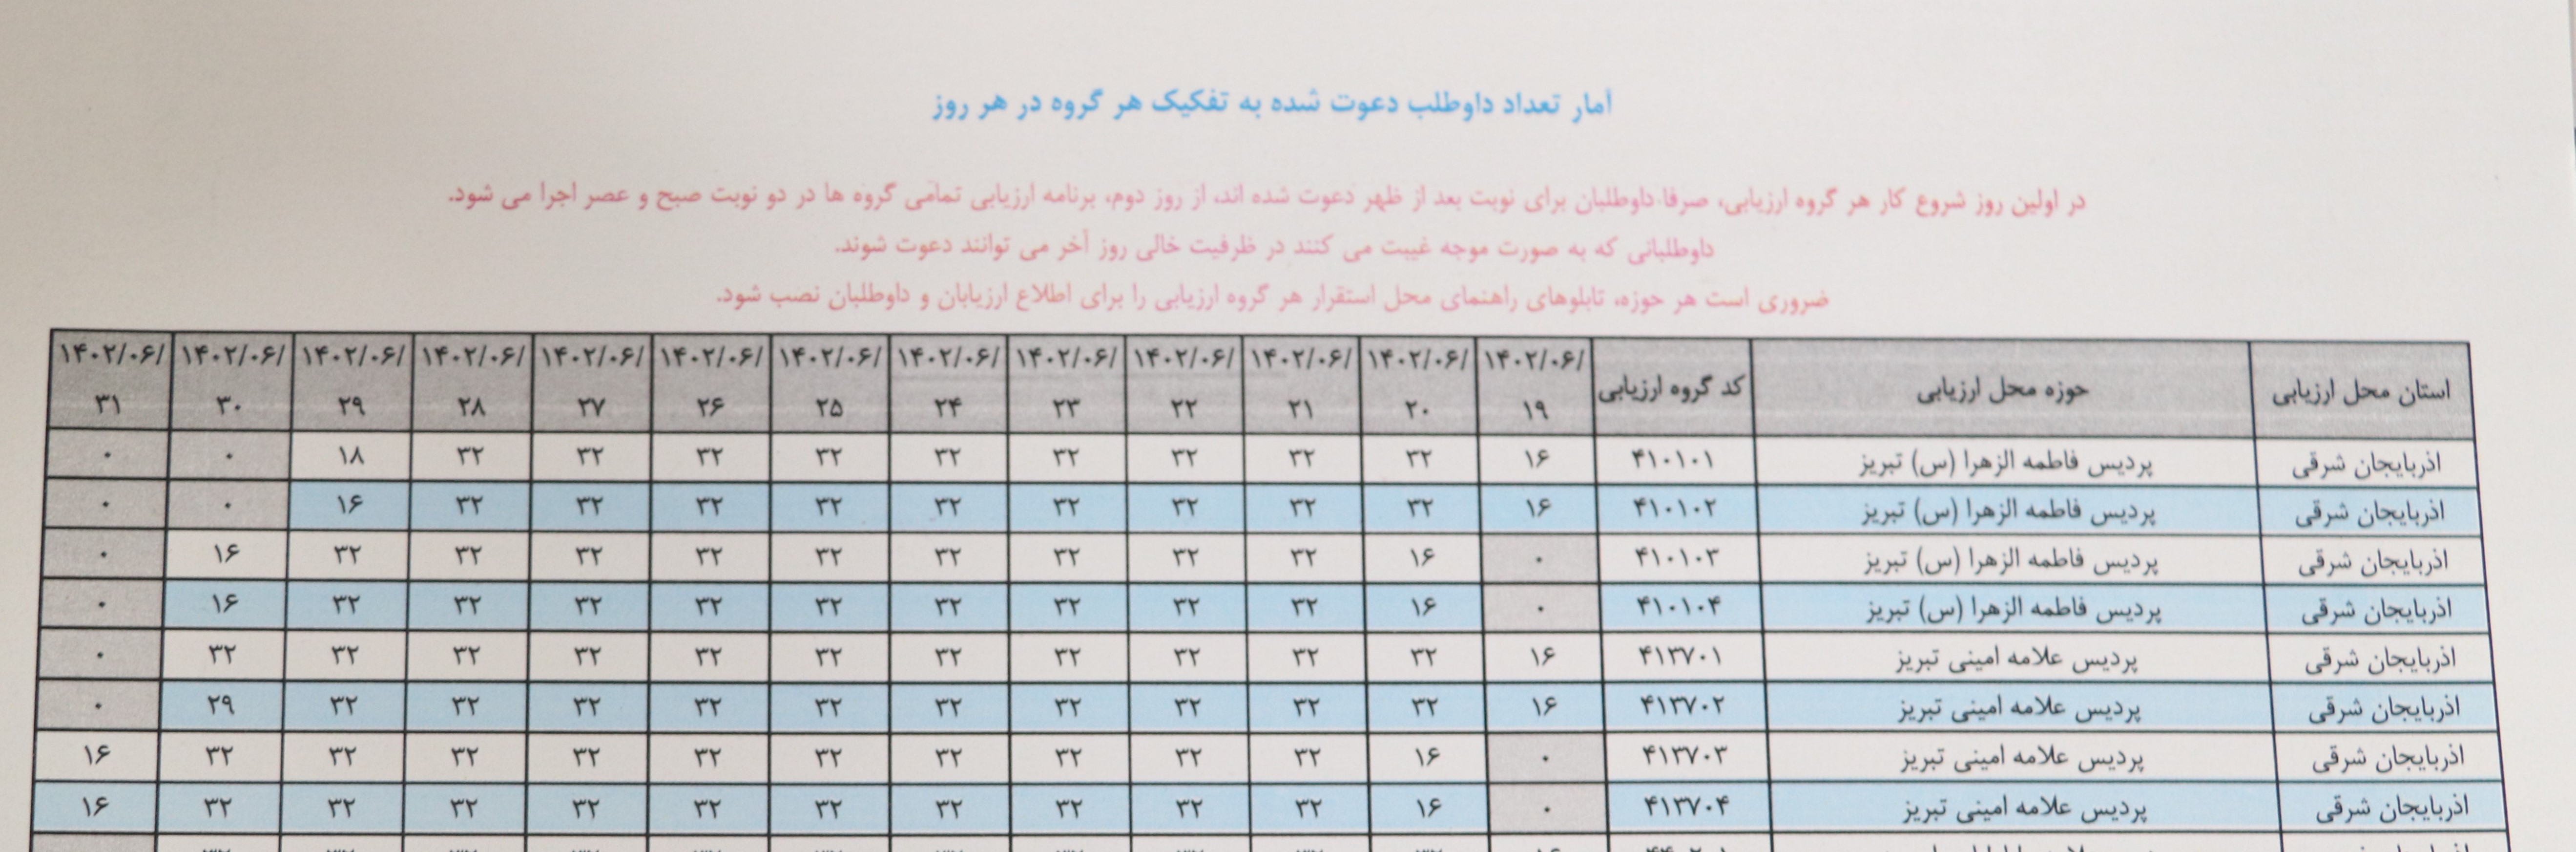 آمار تعداد داوطلب دعوت شده به تفکیک هر گروه در هر روز
در اولین روز شروع کار هر گروه ارزیابی، صرفا داوطلبان برای نوبت بعد از ظهر دعوت شده اند، از روز دوم، برنامه ارزیابی تمامی گروه ها در دو نوبت صبح و عصر اجرا می شود.
داوطلبانی که به صورت موجه غیبت می کنند در ظرفیت خالی روز آخر می توانند دعوت شوند.
ضروری است هر حوزه، تابلوهای راهنمای محل استقرار هر گروه ارزیابی را برای اطلاع ارزیابان و داوطلبان نصب شود.
استان محل ارزیابی حوزه محل ارزیابی کد گروه ارزیابی ۱۴۰۲/۰۶/۱۹ ۱۴۰۲/۰۶/۲۰ ۱۴۰۲/۰۶/۲۱ ۱۴۰۲/۰۶/۲۲ ۱۴۰۲/۰۶/۲۳ ۱۴۰۲/۰۶/۲۴ ۱۴۰۲/۰۶/۲۵ ۱۴۰۲/۰۶/۲۶ ۱۴۰۲/۰۶/۲۷ ۱۴۰۲/۰۶/۲۸ ۱۴۰۲/۰۶/۲۹ ۱۴۰۲/۰۶/۳۰ ۱۴۰۲/۰۶/۳۱
اذربایجان شرقی پردیس فاطمه الزهرا (س) تبریز ۴۱۰۱۰۱ ۱۶ ۳۲ ۳۲ ۳۲ ۳۲ ۳۲ ۳۲ ۳۲ ۳۲ ۳۲ ۱۸ ۰ ۰
اذربایجان شرقی پردیس فاطمه الزهرا (س) تبریز ۴۱۰۱۰۲ ۱۶ ۳۲ ۳۲ ۳۲ ۳۲ ۳۲ ۳۲ ۳۲ ۳۲ ۳۲ ۱۶ ۰ ۰
اذربایجان شرقی پردیس فاطمه الزهرا (س) تبریز ۴۱۰۱۰۳ ۰ ۱۶ ۳۲ ۳۲ ۳۲ ۳۲ ۳۲ ۳۲ ۳۲ ۳۲ ۳۲ ۱۶ ۰
اذربایجان شرقی پردیس فاطمه الزهرا (س) تبریز ۴۱۰۱۰۴ ۰ ۱۶ ۳۲ ۳۲ ۳۲ ۳۲ ۳۲ ۳۲ ۳۲ ۳۲ ۳۲ ۱۶ ۰
اذربایجان شرقی پردیس علامه امینی تبریز ۴۱۳۷۰۱ ۱۶ ۳۲ ۳۲ ۳۲ ۳۲ ۳۲ ۳۲ ۳۲ ۳۲ ۳۲ ۳۲ ۳۲ ۰
اذربایجان شرقی پردیس علامه امینی تبریز ۴۱۳۷۰۲ ۱۶ ۳۲ ۳۲ ۳۲ ۳۲ ۳۲ ۳۲ ۳۲ ۳۲ ۳۲ ۳۲ ۲۹ ۰
اذربایجان شرقی پردیس علامه امینی تبریز ۴۱۳۷۰۳ ۰ ۱۶ ۳۲ ۳۲ ۳۲ ۳۲ ۳۲ ۳۲ ۳۲ ۳۲ ۳۲ ۳۲ ۱۶
اذربایجان شرقی پردیس علامه امینی تبریز ۴۱۳۷۰۴ ۰ ۱۶ ۳۲ ۳۲ ۳۲ ۳۲ ۳۲ ۳۲ ۳۲ ۳۲ ۳۲ ۳۲ ۱۶